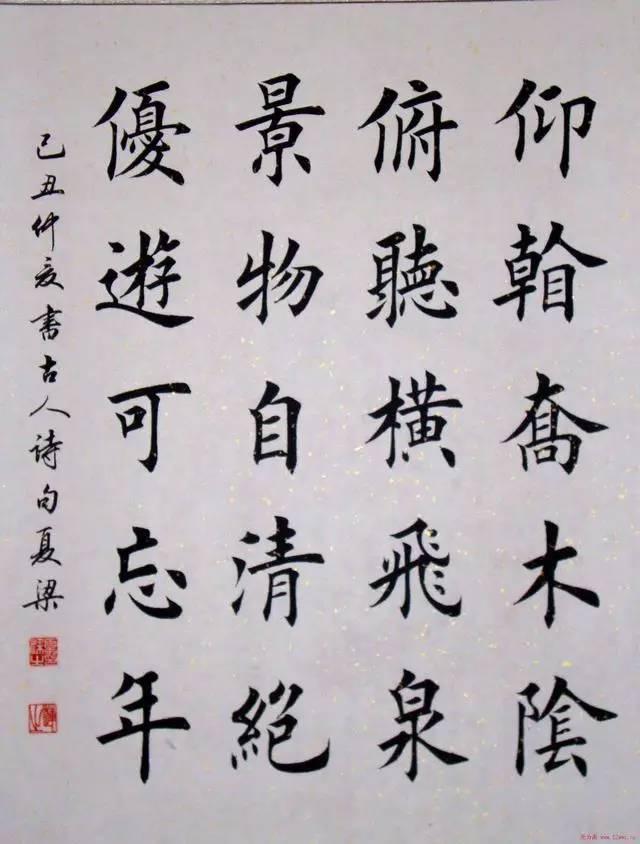 仰看喬木陰
俯聽橫飛泉
景物自清絕
優遊可忘年
己丑仲夏書古人诗句夏梁